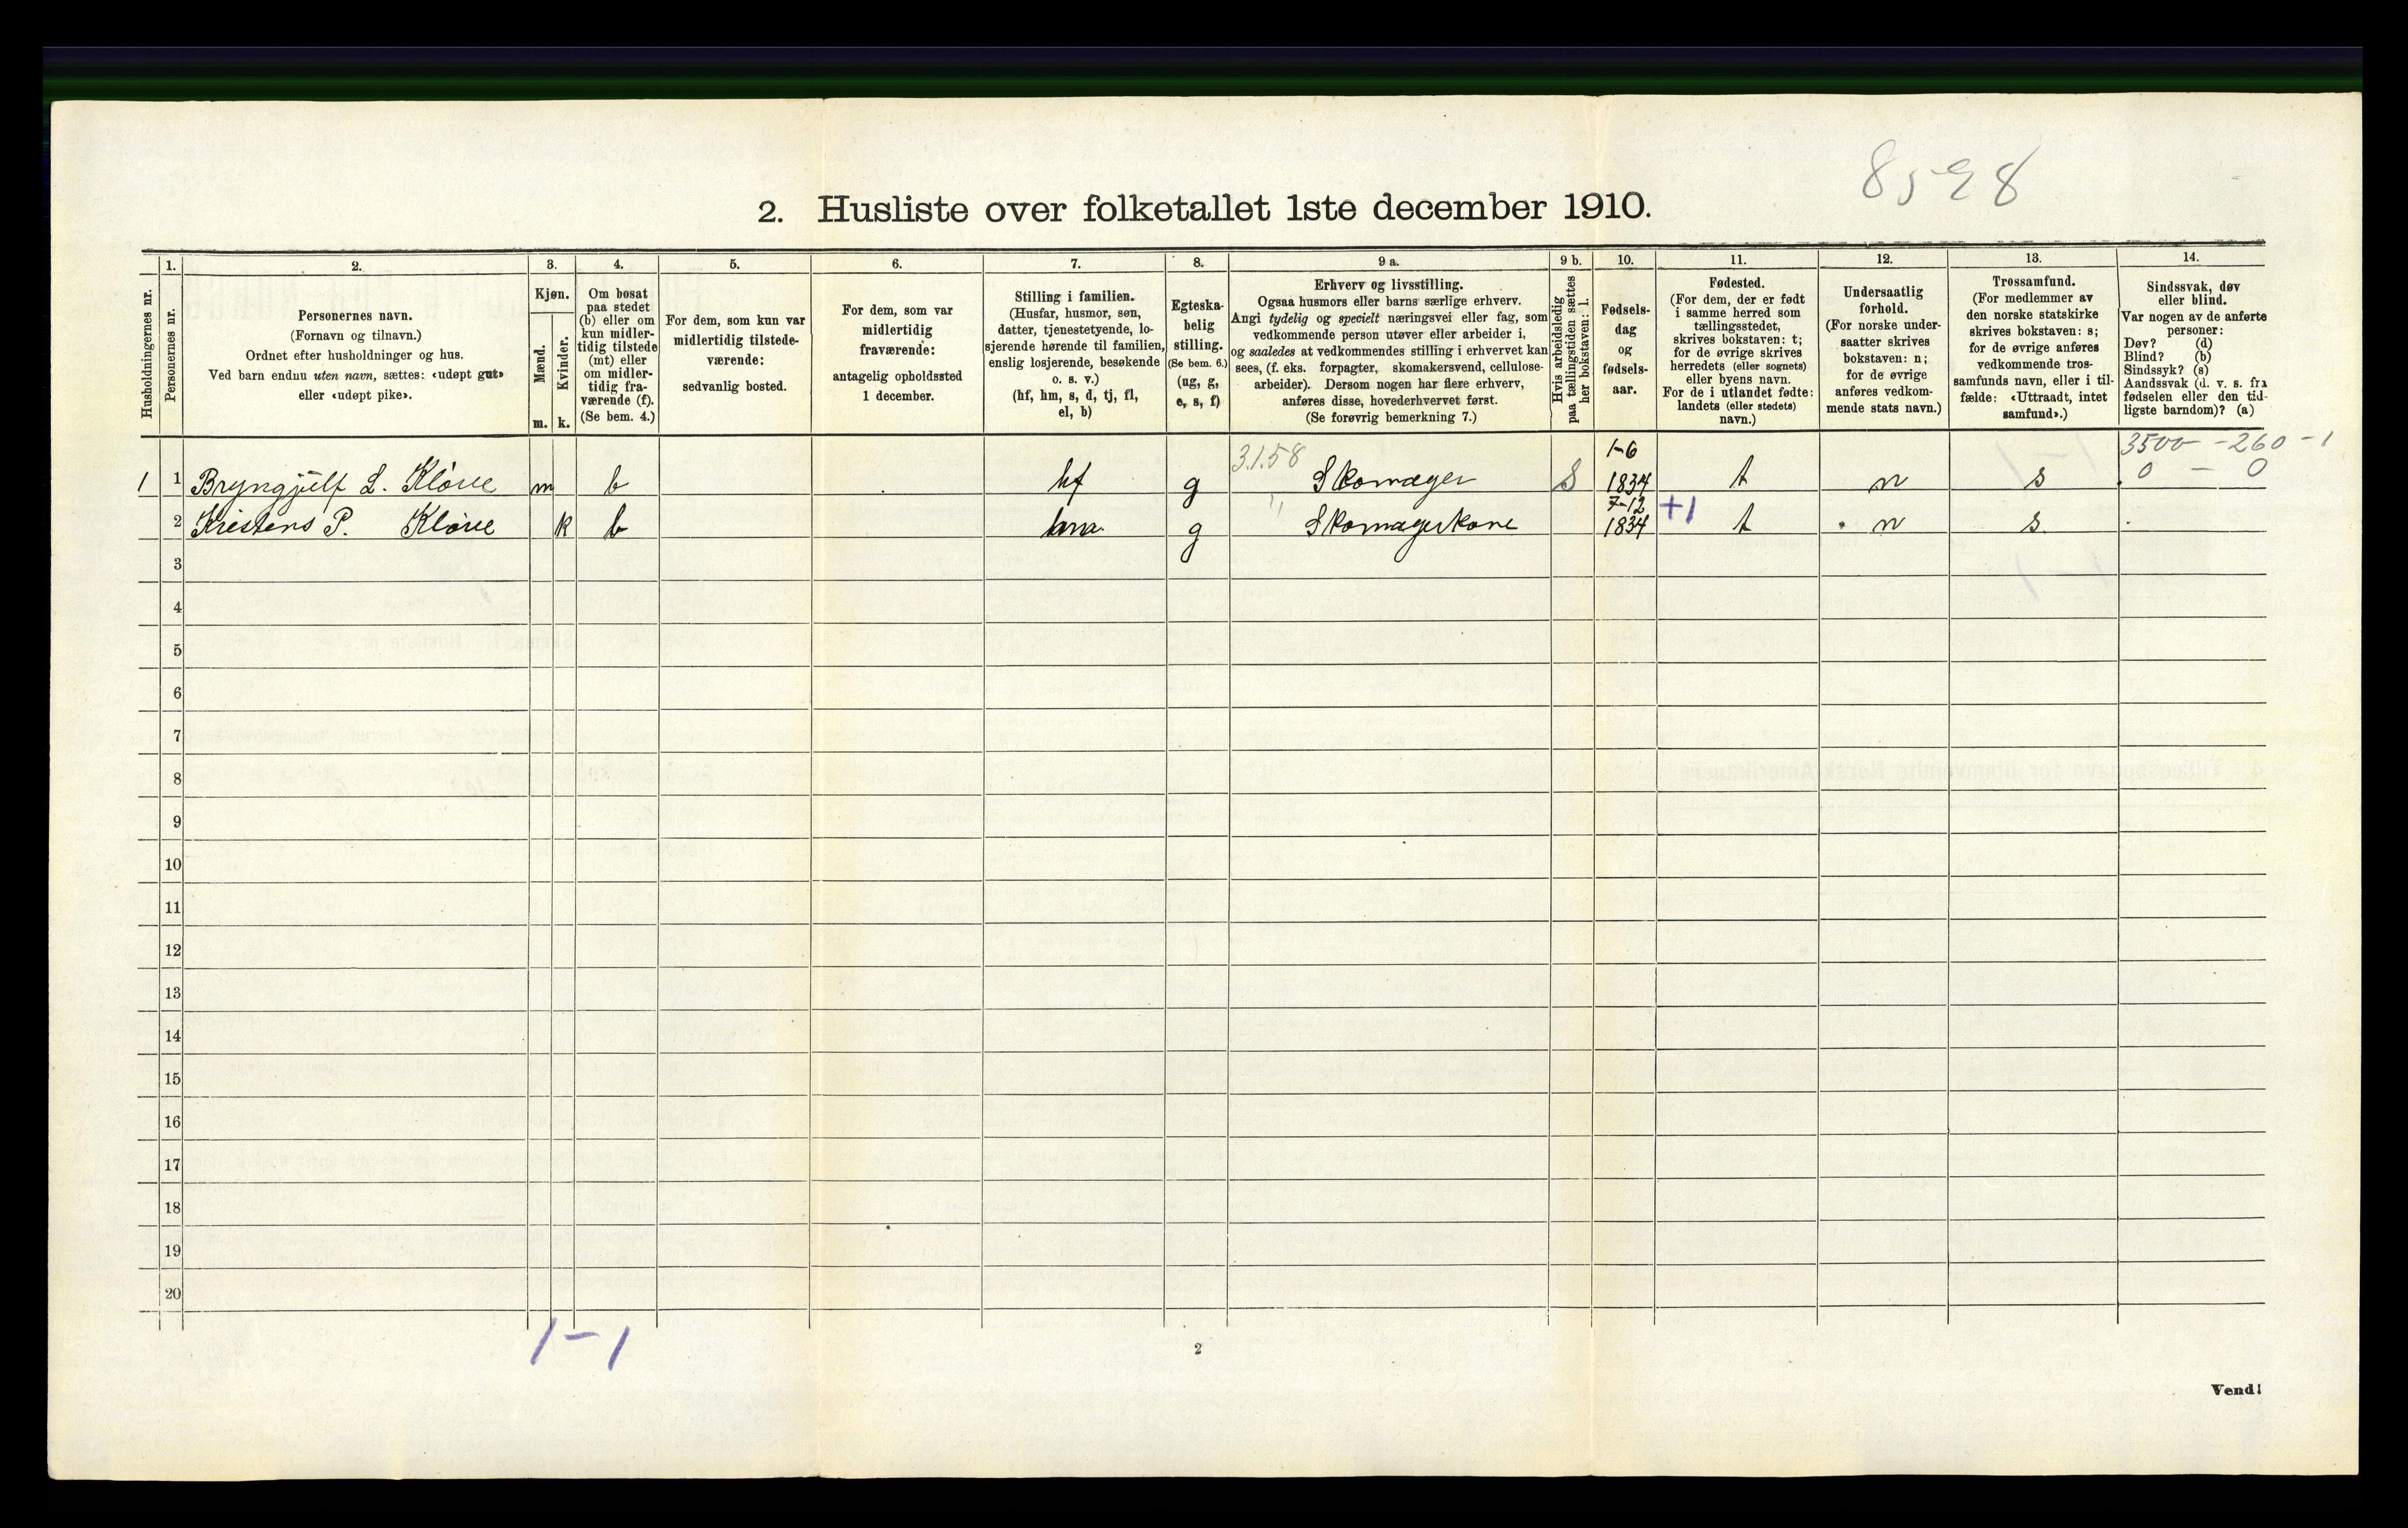 8598
2. Husliste over folketallet 1ste december 1910.
Husholdningernes nr.
1.
Personernes nr.
2.
Personernes navn.
(Fornavn og tilnavn.)
Ordnet efter husholdninger og hus.
Ved barn endnu uten navn, sættes: «udøpt gut»
eller «udøpt pike».
3.
Kjøn.
Mænd.
Kvinder.
m.
k.
4.
Om bosat
paa stedet
(b) eller om
kun midler-
tidig tilstede
(mt) eller
om midler-
tidig fra-
værende (f).
(Se bem. 4.)
5.
For dem, som kun var
midlertidig tilstede-
værende:
sedvanlig bosted.
6.
For dem, som var
midlertidig
fraværende:
antagelig opholdssted
1 december.
7.
Stilling i familien.
(Husfar, husmor, søn,
datter, tjenestetyende, lo-
sjerende hørende til familien,
enslig losjerende, besøkende
o. s. v.)
(hf, hm, s, d, tj, fl,
el, b)
8.
Egteska-
belig
stilling.
(Se bem. 6.)
(ug, g,
e, s, f)
9 a.
Erhverv og livsstilling.
Ogsaa husmors eller barns særlige erhverv.
Angi tydelig og specielt næringsvei eller fag, som
vedkommende person utøver eller arbeider i,
og saaledes at vedkommendes stilling i erhvervet kan
sees, (f. eks. forpagter, skomakersvend, cellulose-
arbeider). Dersom nogen har flere erhverv,
anføres disse, hovederhvervet først.
(Se forøvrig bemerkning 7.)
9 b.
Hvis arbeidsledig
paa tællingstiden sættes
her bokstaven: l.
10.
Fødsels-
dag
og
fødsels-
aar.
11.
Fødested.
(For dem, der er født
i samme herred som
tællingsstedet,
skrives bokstaven: t;
for de øvrige skrives
herredets (eller sognets)
eller byens navn.
For de i utlandet fødte:
landets (eller stedets)
navn.)
12.
Undersaatlig
forhold.
(For norske under-
saatter skrives
bokstaven: n;
for de øvrige
anføres vedkom-
mende stats navn.)
13.
Trossamfund.
(For medlemmer av
den norske statskirke
skrives bokstaven: s;
for de øvrige anføres
vedkommende tros-
samfunds navn, eller i til-
fælde: «Uttraadt, intet
samfund».)
14.
Sindssvak, døv
eller blind.
Var nogen av de anførte
personer:
Døv? (d)
Blind? (b)
Sindssyk? (s)
Aandssvak (d. v. s. fra
fødselen eller den tid-
ligste barndom)? (a)
3500 - 260 - 1
0 - 0
1 1 Bryngjulf L. Kløve m b hf g 3.1.58 Skomager S 1-6 1834 t n s
2 Kristens P. Kløve k b hm g " Skomagerkone 7-12 1834 +1 t n s
3
4
5
6
7
8
9
10
11
12
13
14
15
16
17
18
19
20
1-1
2
Vend!